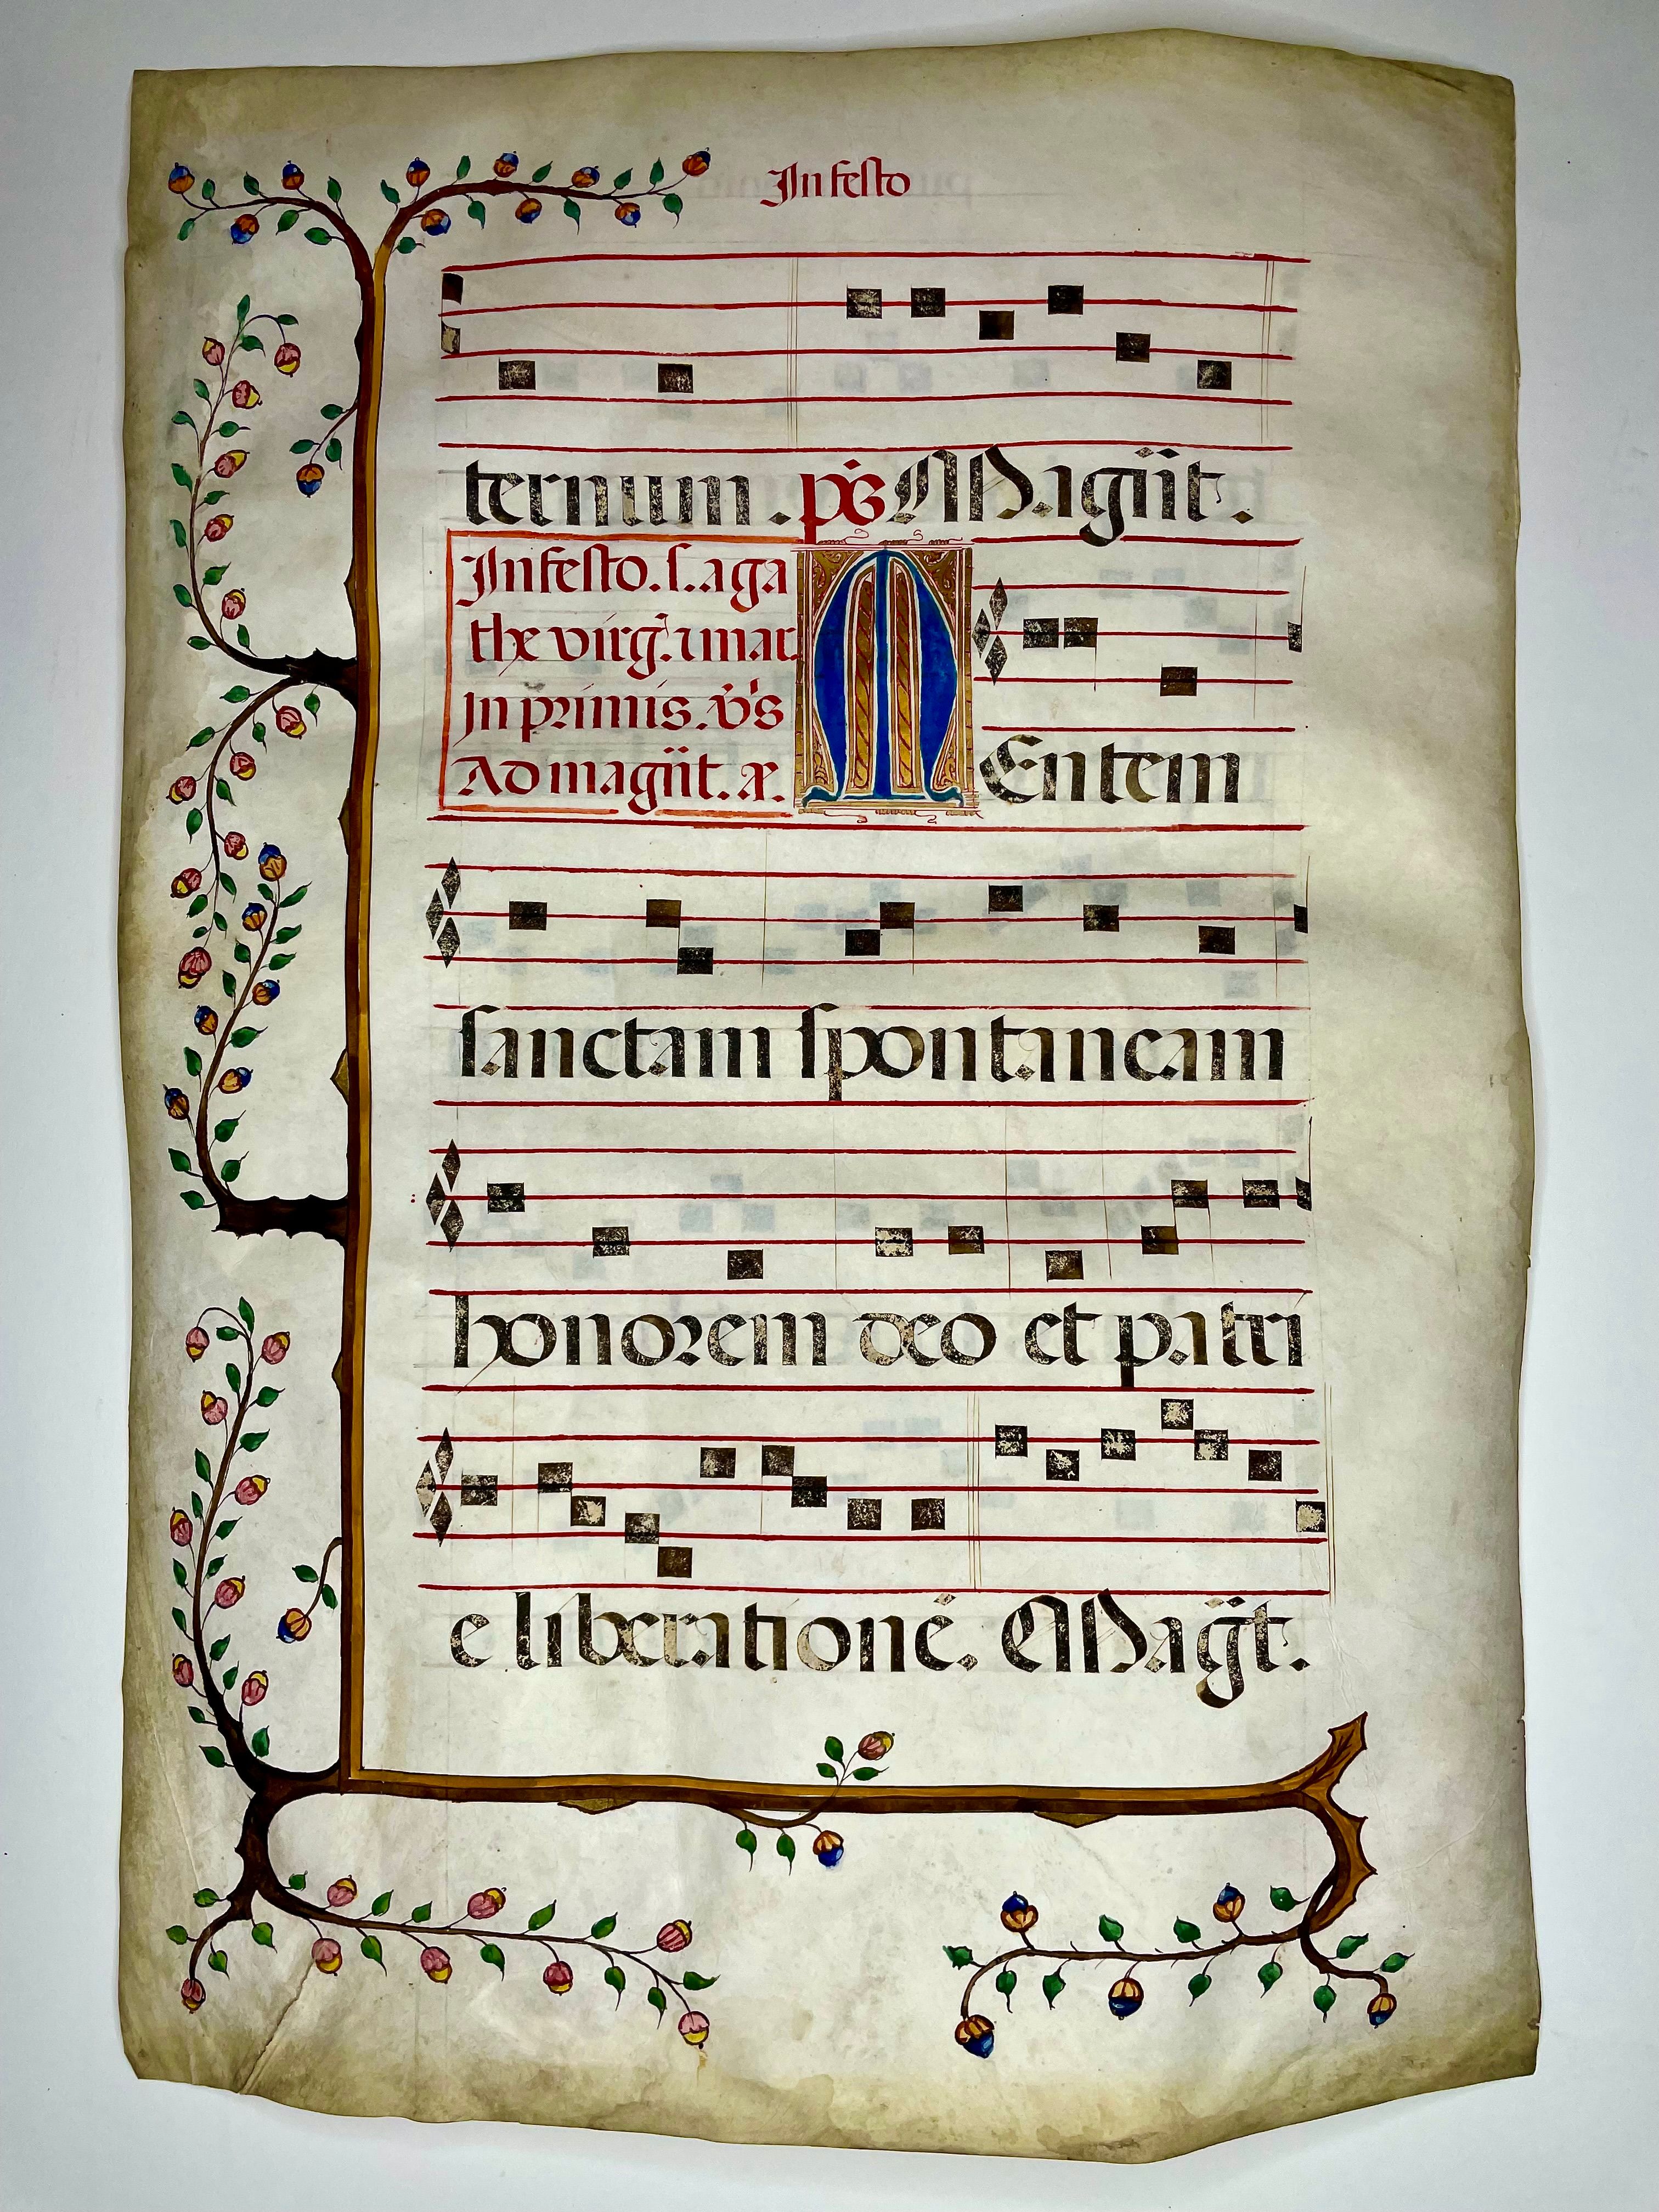 In festo
ternum. ps̄ Magn̄t.
In festo. s. aga
the virḡ. ⁊ mar.
In primis. v̄s
Ad magn̄t. a͞.
MEntem
sanctam spontaneam
honorem deo et patri
e liberationē. Mag̅t.